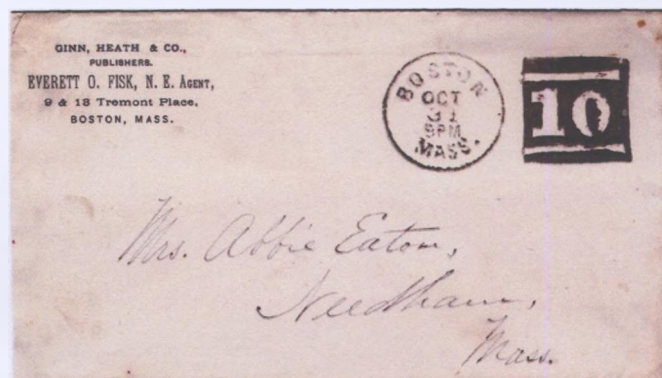 GINN, HEATH & CO.,
PUBLISHERS.
EVERETT O. FISK, N. E. AGENT,
9 & 13 Tremont Place,
BOSTON, MASS.
BOSTON
OCT
31
9PM
MASS.
10
Mrs. Abbie Eaton,
Needham,
Mass.